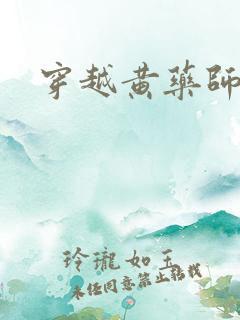 穿越黄藥師
玲瓏如玉
未经同意禁止轉載